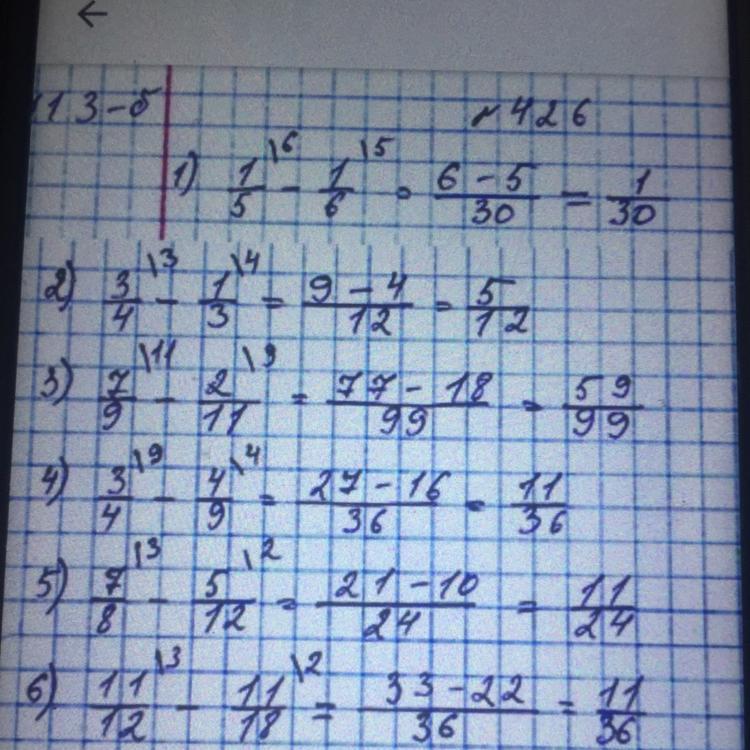 113-б №426
1) 1/5\6 - 1/6\5 = 6-5/30 = 1/30
2) 3/4\3 - 1/3\4 = 9-4/12 = 5/12
3) 7/9\11 - 2/11\9 = 77-18/99 = 59/99
4) 3/4\9 - 4/9\4 = 27-16/36 = 11/36
5) 7/8\3 - 5/12\2 = 21-10/24 = 11/24
6) 11/12\3 - 11/18\2 = 33-22/36 = 11/36